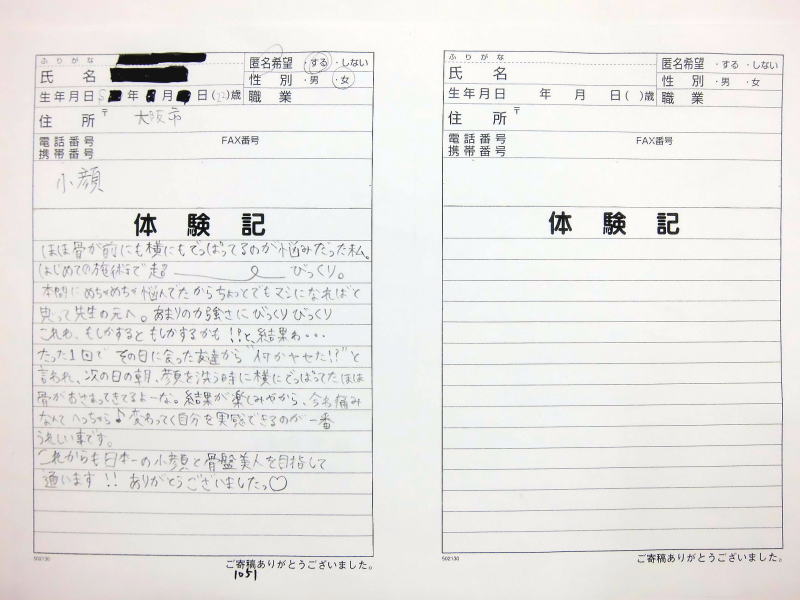 ふりがな
氏 名
匿名希望 ・する ・しない
性 別 ・男 ・女
生年月日 年 月 日( )歳 職 業
住 所 〒 大阪市
電話番号 FAX番号
携帯番号
小顔
体験記
ほほ骨が前にも横にもでっぱってるのが悩みだった私。
はじめての施術で超 びっくり。
本間にめちゃめちゃ悩んでたからちょっとでもマシになればと
思って先生の元へ。あまりの力強さにびっくりびっくり
これわ、もしかするともしかするかも!!と、結果わ・・・
たった1回でその日に会った友達から"何かヤセた!?"と
言われ、次の日の朝、顔を洗う時に横にでっぱってたほほ
骨がおさまってきてるよーな。結果が楽しみやから、今も痛み
なんてへっちゃら♪変わってく自分を実感できるのが一番
うれしい事です。
これからも日本一の小顔と骨盤美人を目指して
通います!!ありがとうございましたっ♡
502130
ご寄稿ありがとうございました。
1051
ふりがな
氏 名
匿名希望 ・する ・しない
性 別 ・男 ・女
生年月日 年 月 日( )歳 職 業
住 所 〒
電話番号 FAX番号
携帯番号
体験記
502130
ご寄稿ありがとうございました。